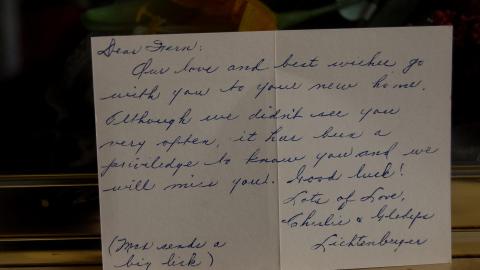 Dear Fern:
Our love and best wishes go
with you to your new home.
Although we didn't see you
very often, it has been a
priviledge to know you and we
will miss you. Good luck!
Lots of Love,
Charlie & Gladys
Lichtenberger
(Mad sends a
big lick)